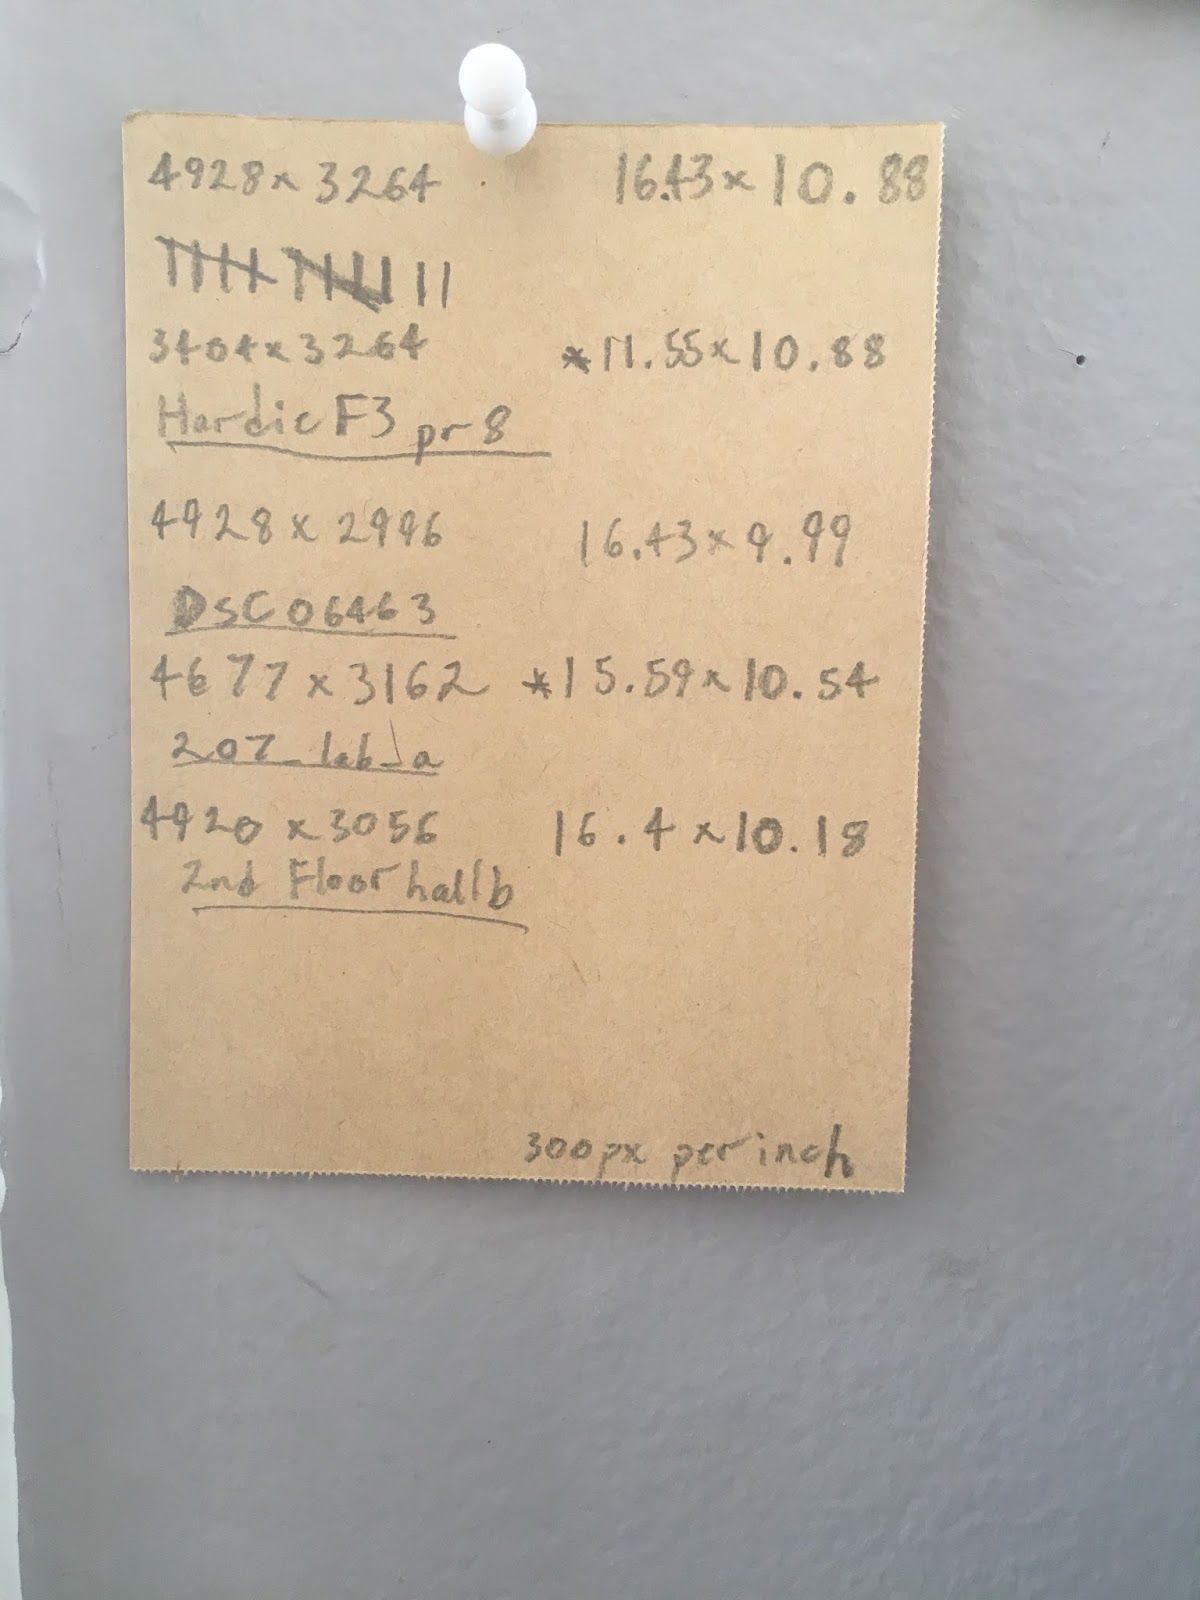 4928 x 3264 16.43 x 10.88
3404 x 3264 *11.55 x 10.88
Hardic F3 pr 8
4928 x 2996 16.43 x 9.99
DSC06463
4677 x 3162 *15.59 x 10.54
207_lab_a
4920 x 3056 16.4 x 10.18
2nd Floor hall b
300px per inch